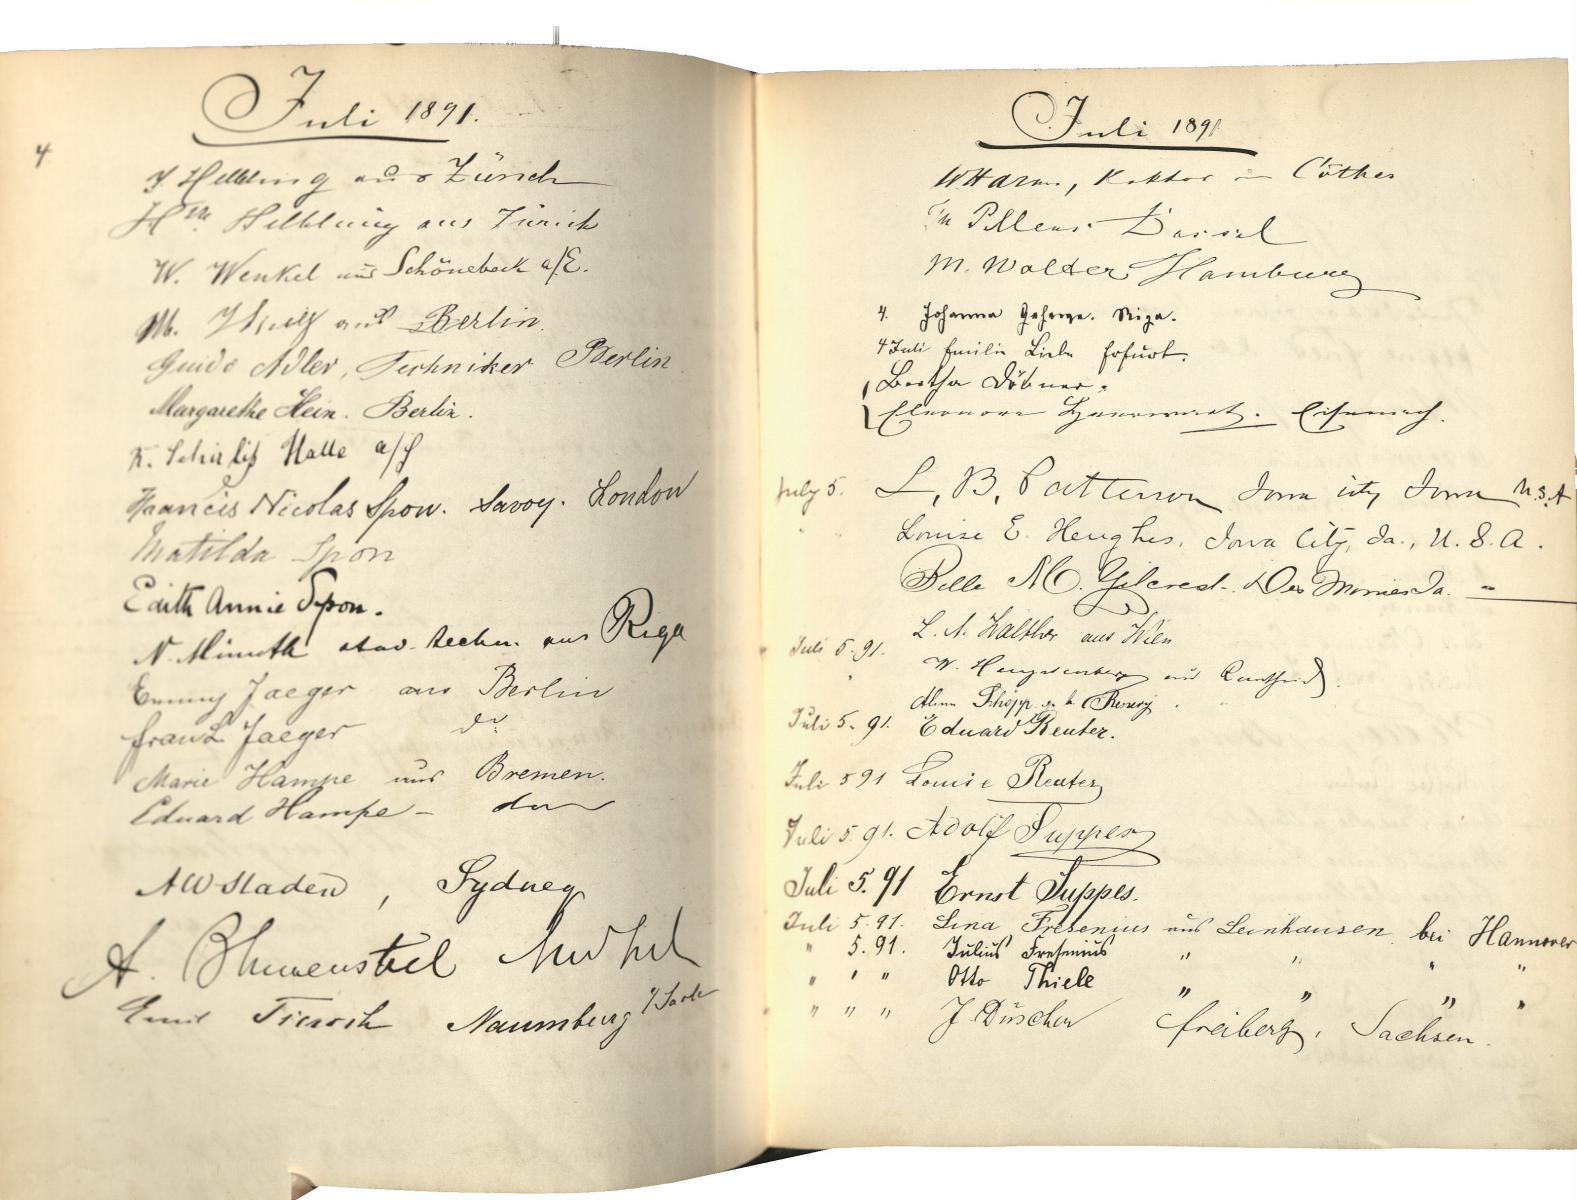 Juli 1891.
4
J. Helbling aus Zürich
Helbling aus Zürich
W. Wenkel aus Schönebeck a/E.
M. aus Berlin.
Guido Adler, Techniker Berlin
Margarethe Hein. Berlin.
K. Halle a/S
Francis Nicolas Spon. Savoy. London
Matilda Spon
Edith Annie Spon.
N. Mimuth stud. techn. aus Riga
Emmy Jaeger aus Berlin
Franz Jaeger do
Marie Hampe aus Bremen.
Eduard Hampe – do
AW Staden, Sydney
A. Blumenstiel
Emil Naumburg a/Saale
Juli 1891
in Cöthen
M. Walder Hamburg
4. Johanna Riga.
4 Juli Emilie Liebe Erfurt.
Bertha Döbner.
Eleonore Eisenach.
July 5. L, B, Patterson Iowa City Iowa U.S.A
Louise E. Hughes, Iowa City, Ia., U.S.A.
Belle M. Gilcrest. Des Moines Ia. –
L. A. Walther aus Wien
Juli 5. 91.
W. aus
Juli 5. 91. Eduard Reuter.
Juli 5 91 Louise Reuter
Juli 5. 91. Adolf Suppes
Juli 5. 91 Ernst Suppes.
Juli 5. 91. Lina Fresenius aus Leinhausen bei Hannover
" 5. 91. Julius Fresenius " " " "
" " " Otto Thiele " " " "
" " " J. Düscher Freiberg, Sachsen.